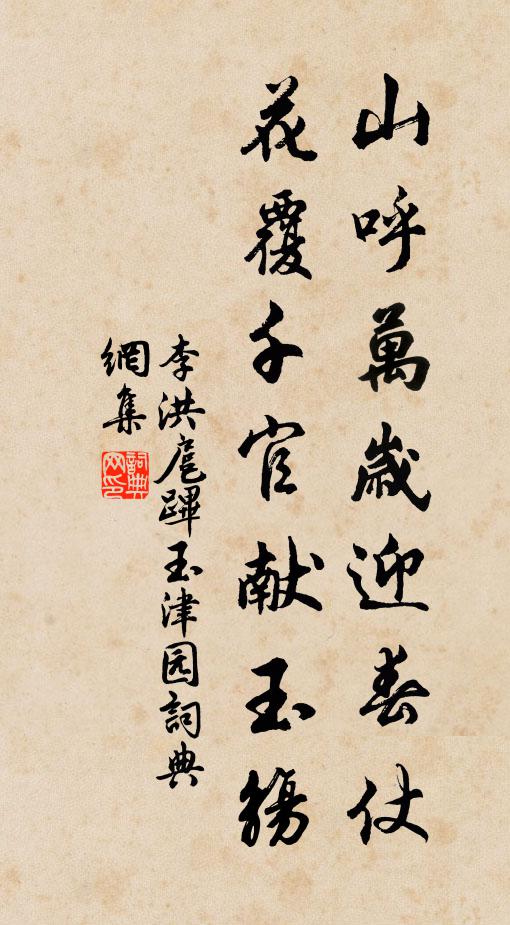 山呼萬歲迎春仗
花覆千官献玉觴
李洪扈蹕玉津园詞典
網集
詞典網印